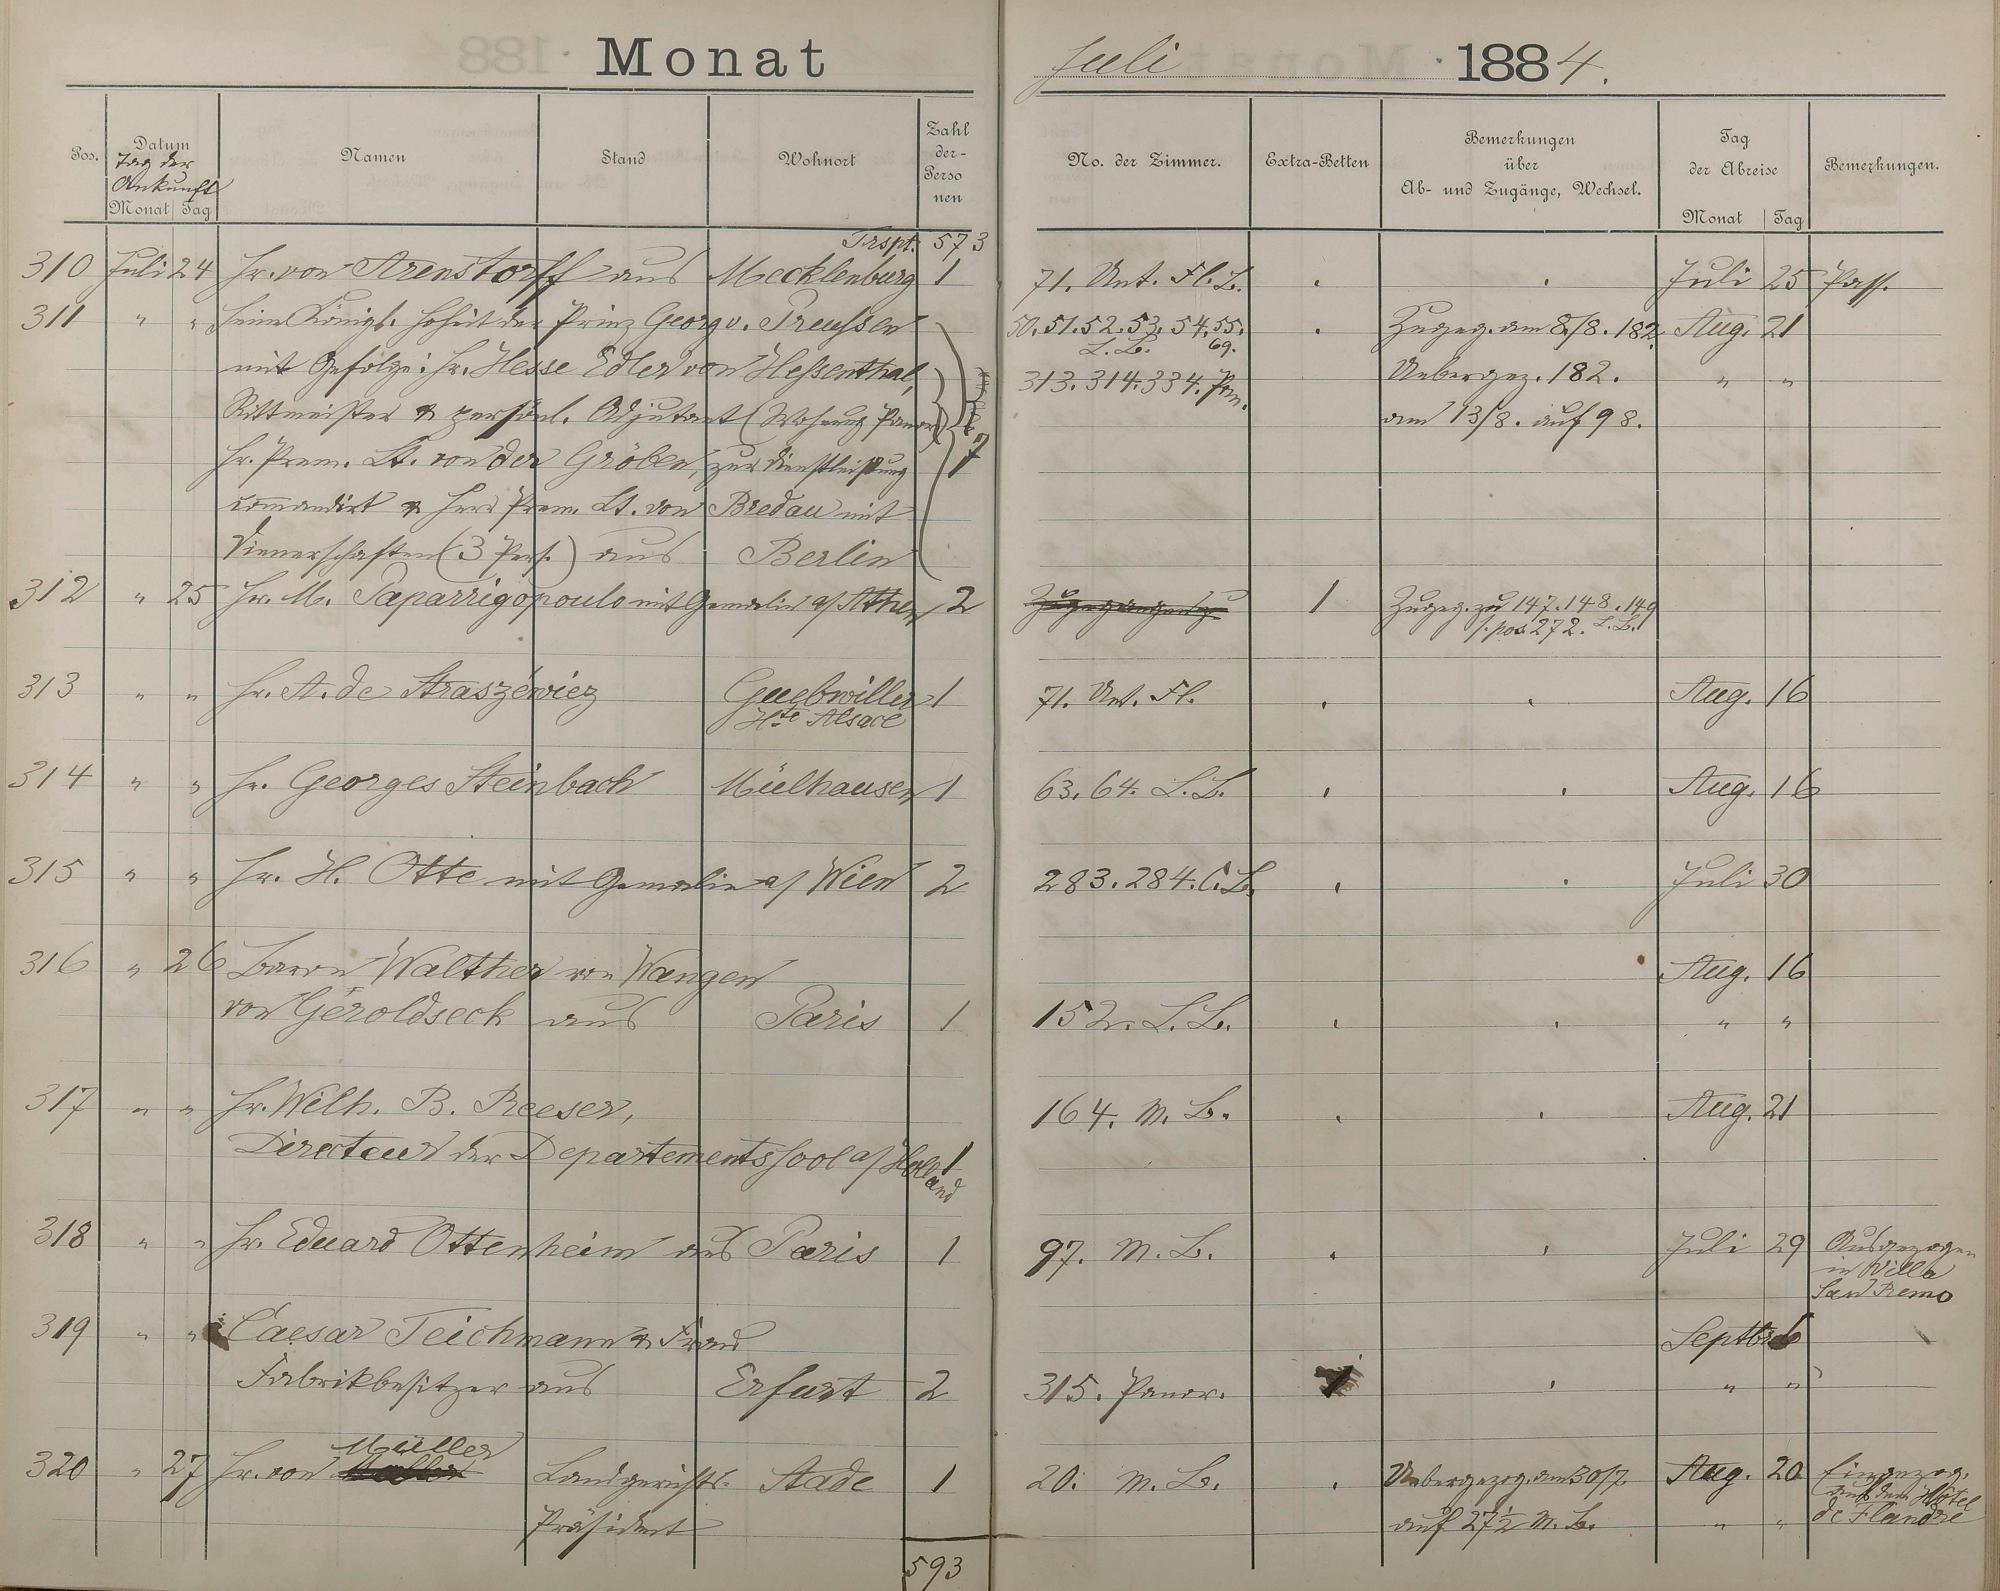 Monat Juli 1884.
Pos. Datum Namen Stand Wohnort Zahl No. der Zimmer. Extra-Betten Bemerkungen Tag Bemerkungen.
Tag der der- über der Abreise
Ankunft Perso Ab- und Zugänge, Wechsel.
Monat Tag nen Monat Tag
Trspt. 573
310 Juli 24 Hr. von Arenstorff aus Mecklenburg 1 71. Unt. Fl. L. Juli 25 Pass.
311 " " Seine Königl. Hoheit der Prinz Georg v. Preussen 50. 51. 52. 53. 54. 55. Zugeg. am 8/8. 182. Aug. 21
L. B. 69.
mit Gefolge: Hr. Hesse Edler von Hessenthal, 313. 314. 334. Pan. Uebergez. 182. " "
Rittmeister & persönl. Adjutant (Wohnung Panor) am 13/8. auf 98.
Hr. Prem. Lt. von der Gröben, zur Dienstleistung 7
commandirt & Herr Prem. Lt. von Bredau mit
Dienerschaften (3 Pers.) aus Berlin
312 " 25 Hr. M. Paparrigopoulo mit Gemalin a/ Athen 2 1 Zugeg. zu 147. 148. 149
s. pos 272. L. B.
313 " " Hr. A. de Straszéwicz Guebwiller 1 71. Unt. Fl. Aug. 16
Hte Alsace
314 " " Hr. Georges Steinbach Mülhausen 1 63. 64. L. B. Aug. 16
315 " " Hr. H. Otte mit Gemalin a/ Wien 2 283. 284. C. B. Juli 30
316 " 26 Baron Walther von Wangen Aug. 16
von Géroldseck aus Paris 1 152. L. B. " "
317 " " Hr. Wilh. B. Reeser, 164. M. B. Aug. 21
Directeur der Departementsschool a/ Holland 1
318 " " Hr. Eduard Ottenheim aus Paris 1 97. M. B. Juli 29 Ausgezogen
in Villa
San Remo
319 " " Caesar Teichmann & Frau Septbr. 6
Fabrikbesitzer aus Erfurt 2 315. Panor. " "
Müller
320 " 27 Hr. von Landgerichts- Stade 1 20. M. B. Uebergezog. am 30/7. Aug. 20 Eingezog.
aus dem Hôtel
Präsident auf 27½ M. B. " " de Flandre
593